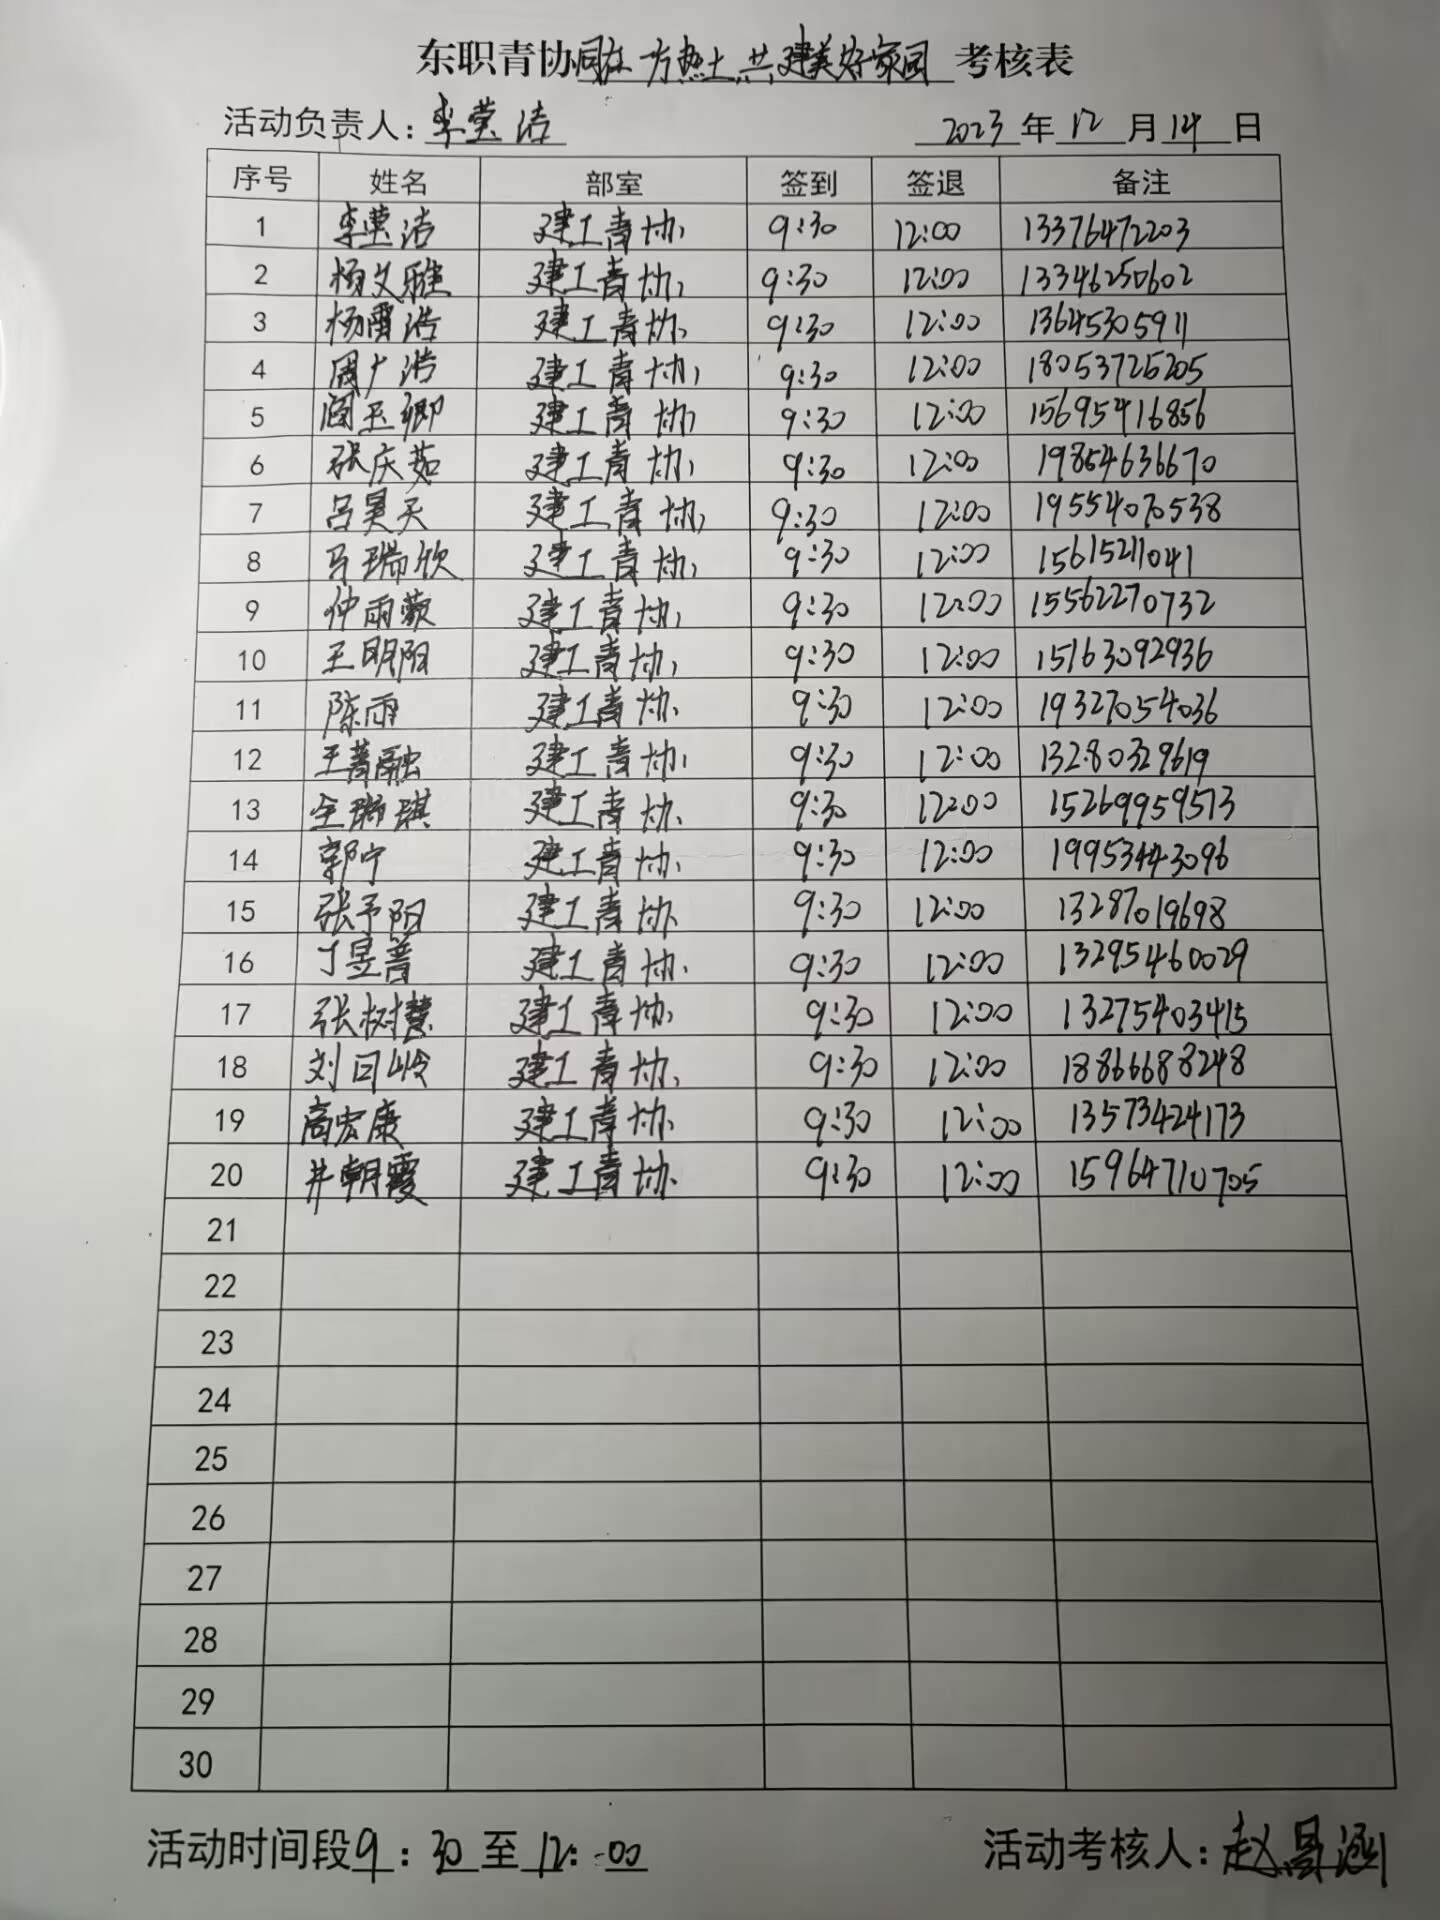 东职青协同在一方热土,共建美好家园考核表
活动负责人:李莹洁 2023年12月14日
序号 姓名 部室 签到 签退 备注
1 李莹洁 建工青协 9:30 12:00 13376472203
2 杨文雅 建工青协 9:30 12:00 13346250602
3 杨雷浩 建工青协 9:30 12:00 13645305911
4 周广浩 建工青协 9:30 12:00 18053725205
5 闫玉卿 建工青协 9:30 12:00 15695416856
6 张庆茹 建工青协 9:30 12:00 19854636670
7 吕昊天 建工青协 9:30 12:00 19554070538
8 马瑞欣 建工青协 9:30 12:00 15615211041
9 仲雨蒙 建工青协 9:30 12:00 15562270732
10 王明阳 建工青协 9:30 12:00 15163092936
11 陈雨 建工青协 9:30 12:00 19327054036
12 王菁融 建工青协 9:30 12:00 13280329619
13 建工青协 9:30 12:00 15269959513
14 郭宁 建工青协 9:30 12:00 19953443096
15 张予阳 建工青协 9:30 12:00 13287019698
16 丁昱普 建工青协 9:30 12:00 13295460029
17 张树慧 建工青协 9:30 12:00 13275403415
18 刘日岭 建工青协 9:30 12:00 18866688248
19 高宏康 建工青协 9:30 12:00 13573424173
20 井朝霞 建工青协 9:30 12:00 15964710705
21
22
23
24
25
26
27
28
29
30
活动时间段9:30至12:00 活动考核人:赵昌涵